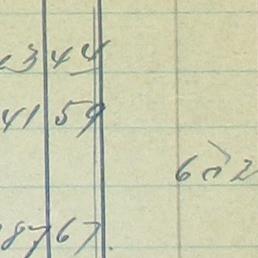 23 44
41 59
6
87 67